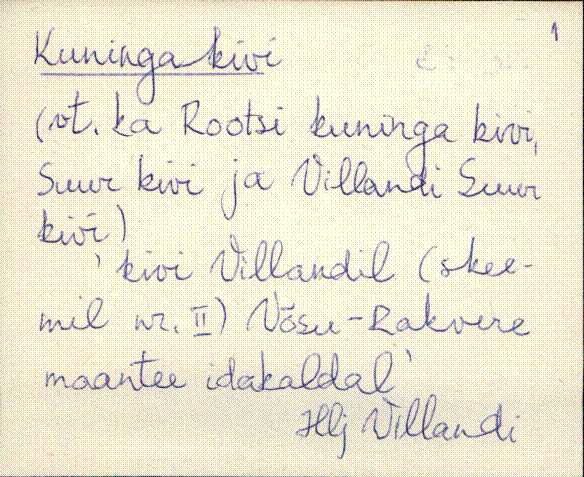 1
Kuninga kivi
(vt. ka Rootsi kuninga kivi,
Suur kivi ja Villandi Suur
kivi)
' kivi Villandil (skee-
mil nr. II) Võsu-Rakvere
maantee idakaldal'
Hlj Villandi